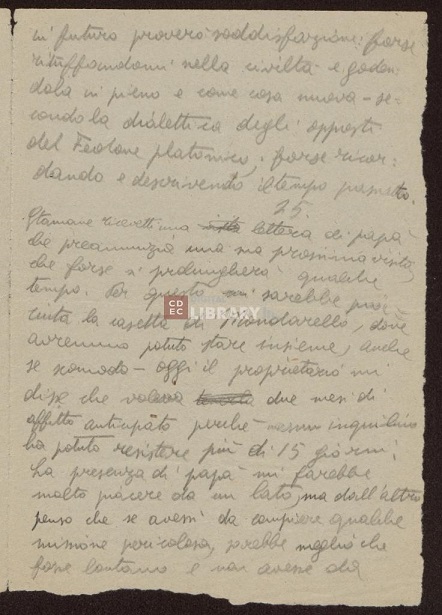 in futuro proverò soddisfazione: forse
rituffandomi nella civiltà e goden-
dola in pieno e come cosa nuova - se-
condo la dialettica degli opposti
del Fedone platonico, forse ricor-
dando e descrivendo il tempo passato.
25.
Stamane ricevetti una lettera di papà
che preannunzia una sua prossima visita,
che forse si prolungherà qualche
tempo. Per questo mi sarebbe piac-
iuta la casetta di Mondarello, dove
avremmo potuto stare insieme, anche
se scomodo - oggi il proprietario mi
disse che voleva due mesi di
affitto anticipato perchè nessun inquilino
ha potuto resistere più di 15 giorni;
La presenza di papà mi farebbe
molto piacere da un lato, ma dall'altro
penso che se avessi da compiere qualche
missione pericolosa, sarebbe meglio che
fosse lontano e non avesse da
CDEC LIBRARY